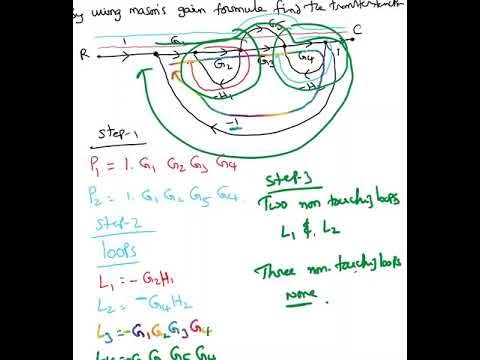 By using mason's gain formula find the transfer
R 1 G1 G5 C
G2 G3 G4 1
-H1 -H
-1
Step-1
P1 = 1. G1 G2 G3 G4
P2 = 1. G1 G2 G5 G4.
Step-2
loops
L1 = -G2H1
L2 = -G4H2
L3 = -G1G2G3G4
G5 G4
Step-3
Two non touching loops
L1 & L2
Three non-touching loops
None.